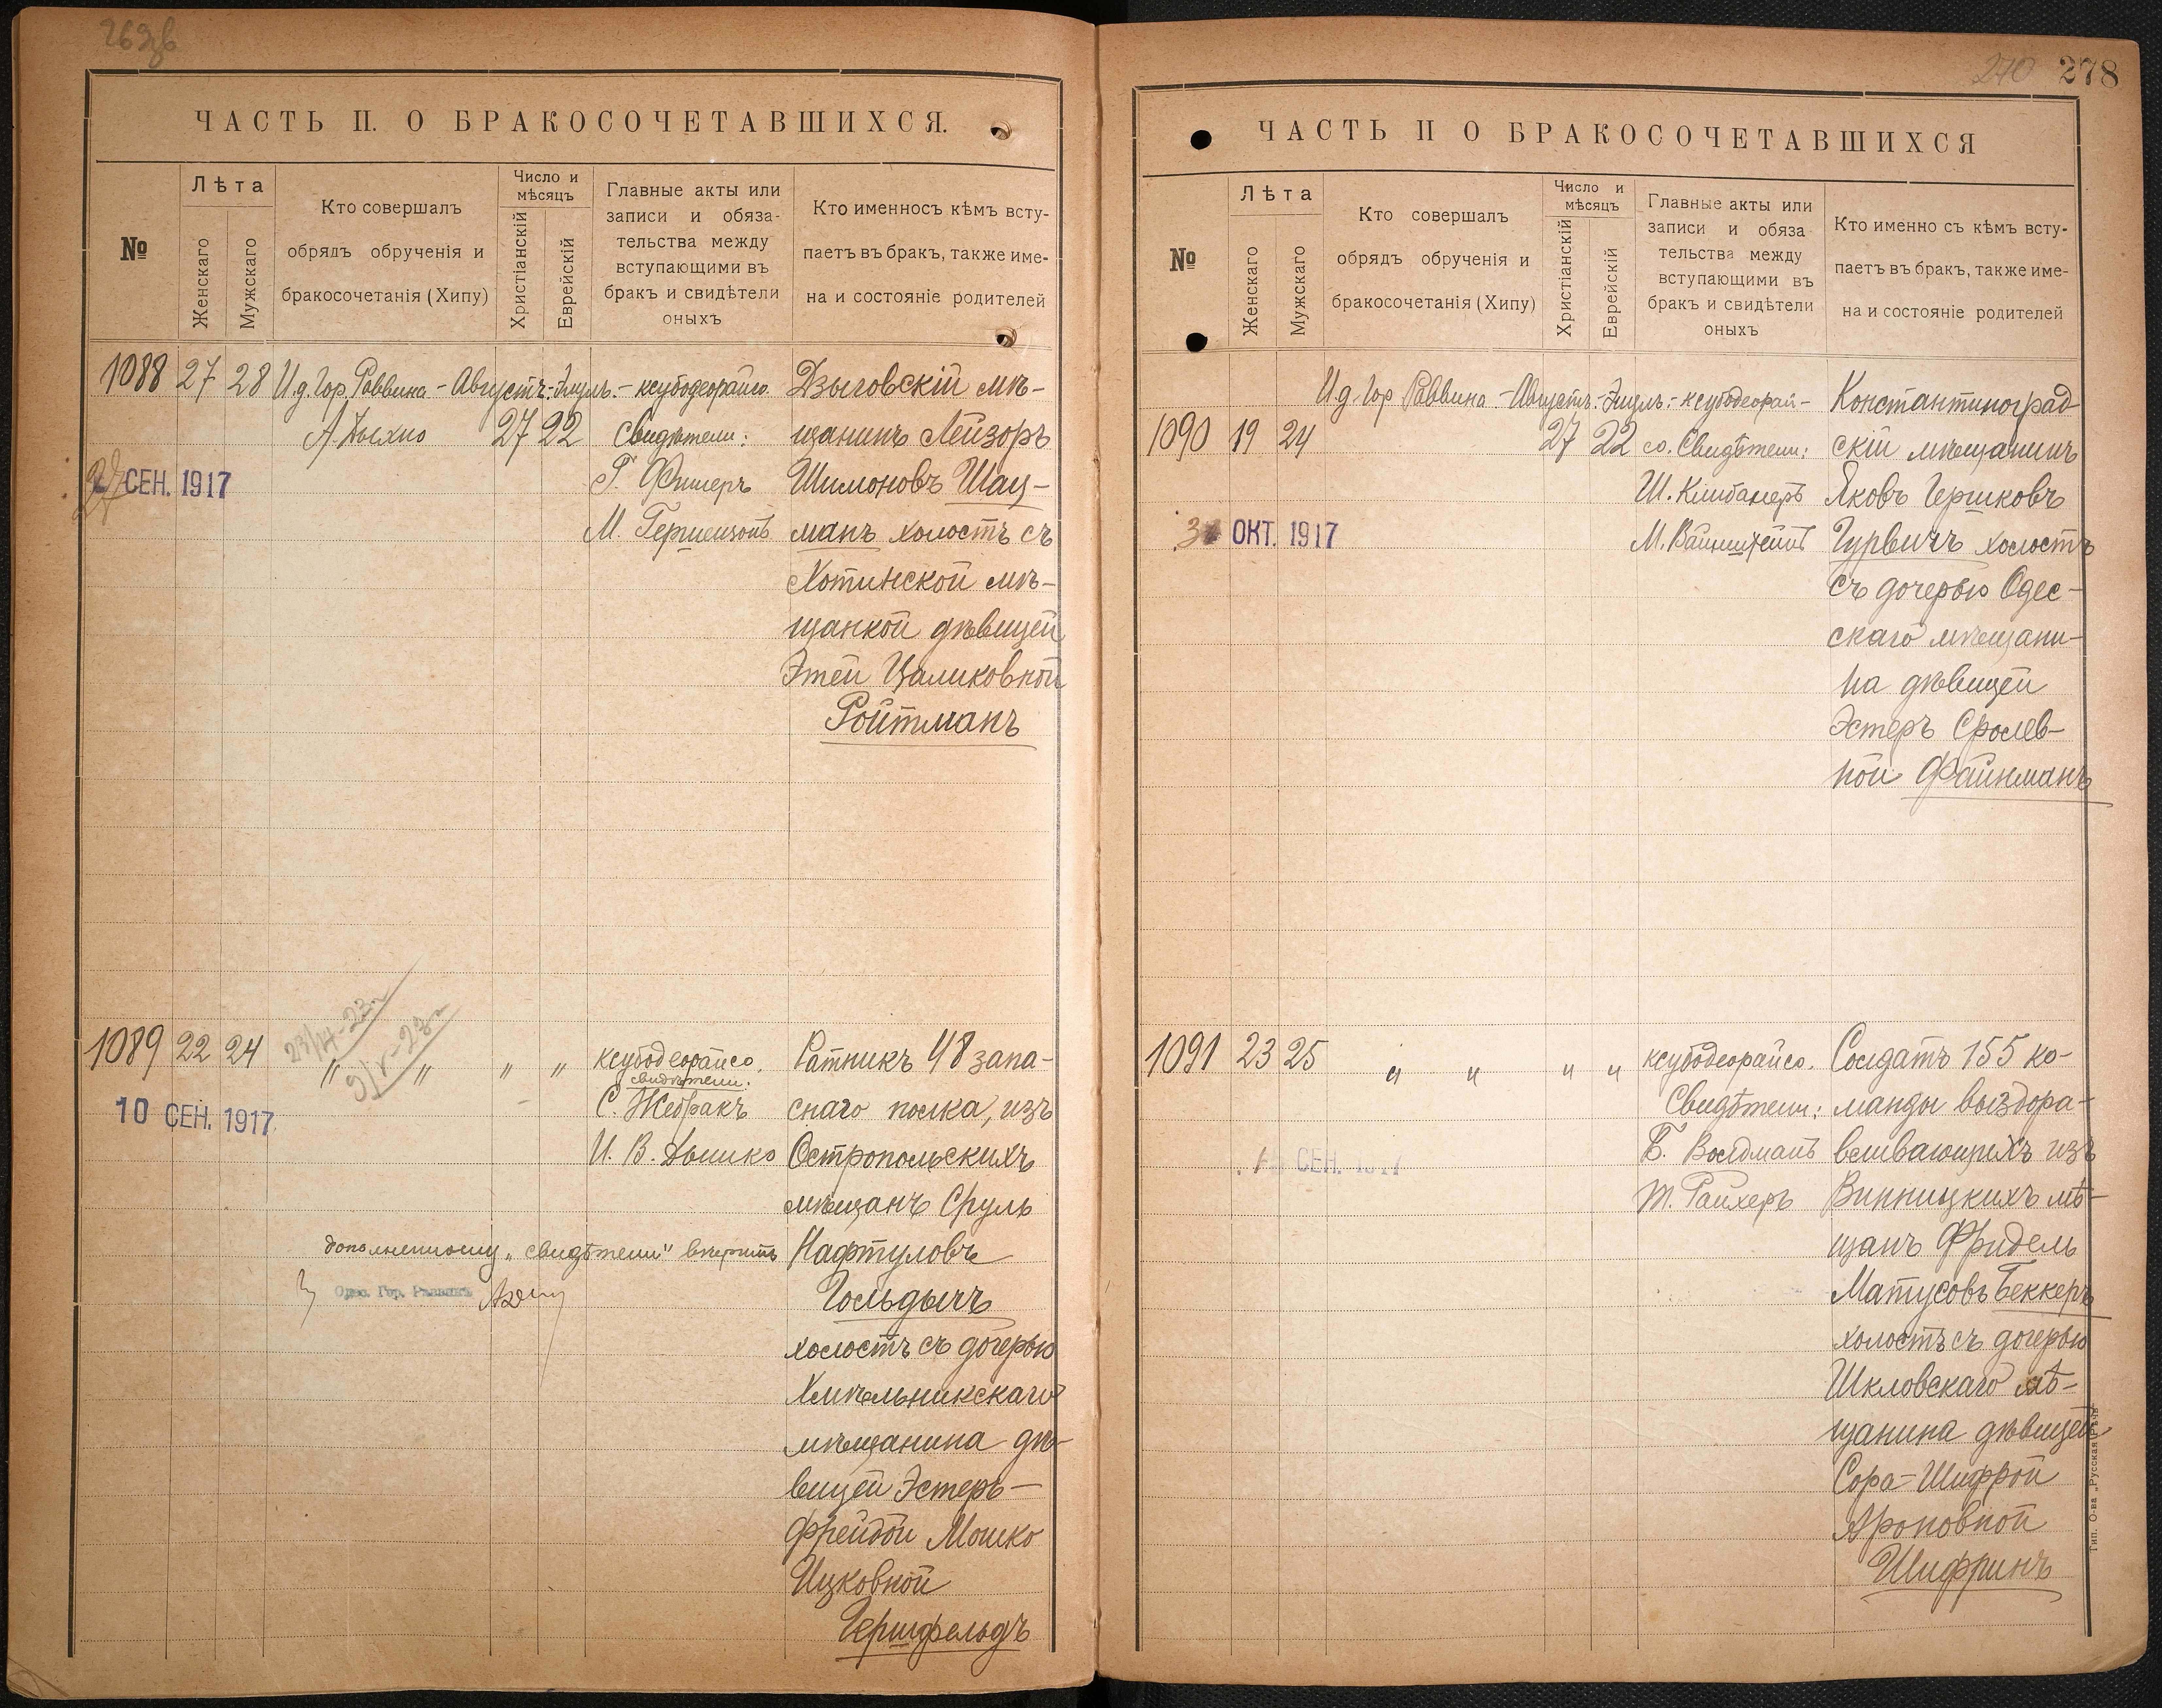 278
270
ЧАСТЬ II. О БРАКОСОЧЕТАВШИХСЯ.
№
Лѣта
Женскаго
Мужскаго
Кто совершалъ
обрядъ обрученія и
бракосочетанія (Хипу)
Число и
мѣсяцъ
Христіанскій
Еврейскій
Главные акты или
записи и обяза-
тельства между
вступающими въ
бракъ и свидѣтели
оныхъ
Кто именносъ кѣмъ всту-
паетъ въ бракъ, также име-
на и состояніе родителей
1088 27 28 И.д. Гор. Раввина - Августъ - Элулъ. - ксубодеорайсо
27 22 Свидѣтели:
СЕН. 1917
Г. Фишеръ
М. Гершензонъ
Дзыговскій мѣ-
щанинъ Лейзоръ
Шимоновъ Шац-
манъ холостъ съ
Хотинской мѣ-
щанкой дѣвицей
Этей Цаликовной
Ройтманъ
1089 22 24 " " " " ксубодеорайсо.
свидѣтели:
10 СЕН. 1917
С. Жебракъ
И. В. Дышко
Ратникъ 48 запа-
снаго полка, изъ
Остропольскихъ
мѣщанъ Сруль
Нафтуловъ
Гольдычъ
холостъ съ дочерью
Хмѣльникскаго
мѣщанина дѣ-
вицей Эстеръ-
Фрейдой Мошко
Ицковной
Гершфельдъ
дополненному „свидѣтели" вѣрить
Одес. Гор. Раввинъ
ЧАСТЬ II О БРАКОСОЧЕТАВШИХСЯ
№
Лѣта
Женскаго
Мужскаго
Кто совершалъ
обрядъ обрученія и
бракосочетанія (Хипу)
Число и
мѣсяцъ
Христіанскій
Еврейскій
Главные акты или
записи и обяза
тельства между
вступающими въ
бракъ и свидѣтели
оныхъ
Кто именно съ кѣмъ всту-
паетъ въ бракъ, также име-
на и состояніе родителей
И.д. Гор. Раввина - Августъ. - Элулъ. - ксубодеорай-
1090 19 24 27 22 со. Свидѣтели:
Ш. Клибанеръ
М. Вайнштейнъ
ОКТ. 1917
Константиноград
скій мѣщанинъ
Яковъ Гершковъ
Гурвичъ холостъ
съ дочерью Одес-
скаго мѣщани-
на дѣвицей
Эстеръ Сролев-
ной Файнманъ
1091 23 25 " " " " ксубодеорайсо.
Свидѣтели:
СЕН. 1917
Б. Волдманъ
Т. Райхеръ
Солдатъ 155 ко-
манды выздора-
вливающихъ изъ
Винницкихъ мѣ-
щанъ Фридель
Матусовъ Беккеръ
холостъ съ дочерью
Шкловскаго мѣ-
щанина дѣвицей
Сора-Шифрой
Ароновной
Шифринъ
Тип. О-ва „Русская Рѣчь"